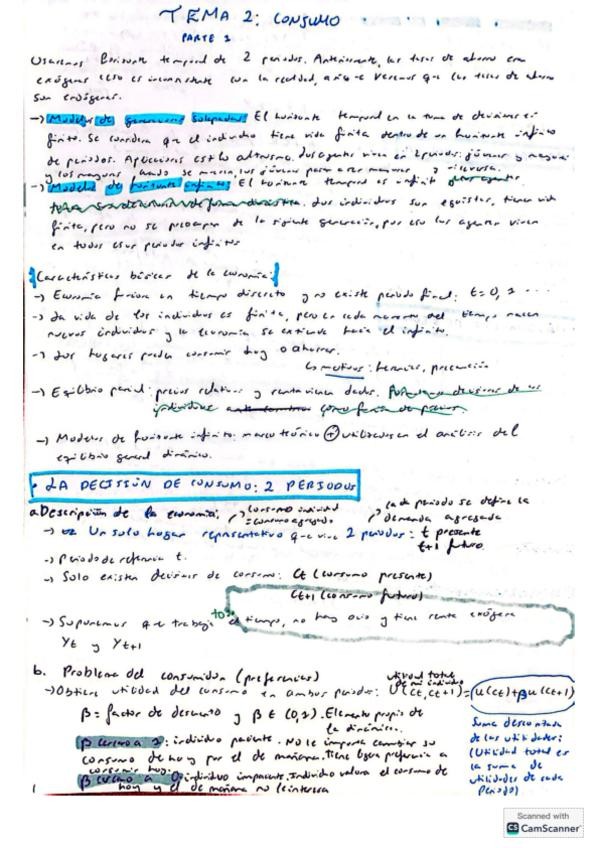 TEMA 2: CONSUMO
PARTE 1
Usaremos horizonte temporal de 2 periodos. Anteriormente, las tasas de ahorro eran
exógenas (eso es inconsistente con la realidad, veremos que las tasas de ahorro
son endógenas.
→ Modelos de generaciones solapadas: El horizonte temporal en la toma de decisiones es
finito. Se considera que el individuo tiene vida finita dentro de un horizonte infinito
de periodos. los agentes viven en 2 periodos: jóvenes y mayores
y los mayores cuando se mueren, los jóvenes pasan a ser mayores y viceversa.
→ Modelos de horizonte infinito: El horizonte temporal es infinito
Los individuos son egoistas, tienen vida
finita, pero no se preocupan de la siguiente generación, por eso los agentes viven
en todos esos periodos infinitos
Características básicas de la economía:
→ Economía funciona en tiempo discreto y no existe periodo final: t=0, 1 ...
→ La vida de los individuos es finita, pero en cada momento del tiempo nacen
nuevos individuos y la economía se extiende hacia el infinito.
→ Los hogares pueden consumir hoy o ahorrar.
↳ motivos: herencias, precaución
→ Equilibrio parcial: precios relativos y renta vienen dados.
→ Modelos de horizonte infinito: marco teórico + utilizado en el análisis del
equilibrio general dinámico.
• LA DECISIÓN DE CONSUMO: 2 PERIODOS
a. Descripción de la economía:
consumo individual
= consumo agregado
cada periodo se define la
demanda agregada
→ Un solo hogar representativo que vive 2 periodos: t presente
t+1 futuro.
→ Periodo de referencia t.
→ Solo existen decisiones de consumo: Ct (consumo presente)
Ct+1 (consumo futuro)
→ Suponemos que trabaja todo el tiempo, no hay ocio y tiene renta exógena
Yt y Yt+1
b. Problema del consumidor (preferencias)
utilidad total
de mi individuo
→ Obtiene utilidad del consumo en ambos periodos: U(Ct, Ct+1) = u(Ct) + βu(Ct+1)
β = factor de descuento y β ∈ (0,1). Elemento propio de
la dinámica.
β cercano a 1: individuo paciente. No le importa cambiar su
consumo de hoy por el de mañana. Tiene preferencia a
consumir hoy.
β cercano a 0: individuo impaciente. Individuo valora el consumo de
hoy y el de mañana no le interesa
Suma descontada
de las utilidades:
(Utilidad total es
la suma de
utilidades de cada
periodo)
Scanned with
CS CamScanner